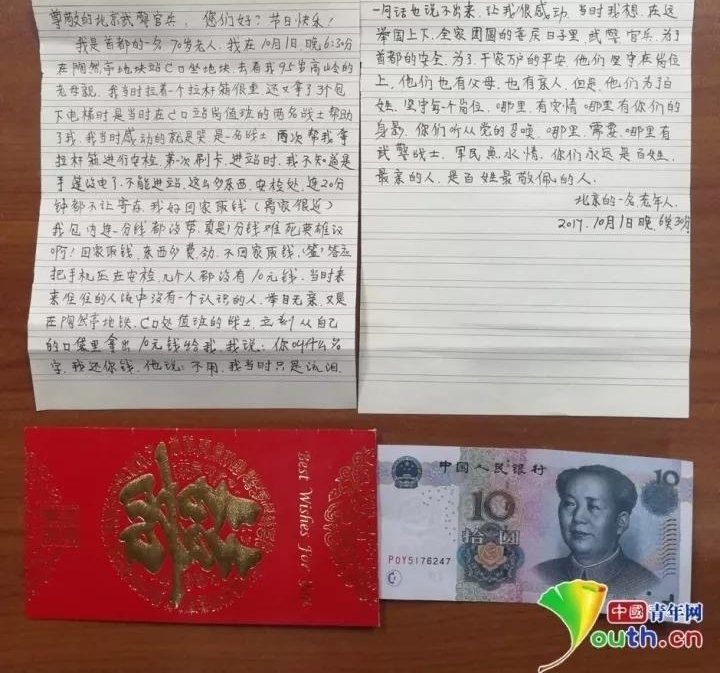 尊敬的北京武警官兵，您们好？节日快乐！
我是首都的一名70岁老人，我在10月1日晚6:30分
在陶然亭地铁站C口坐地铁，去看我95岁高龄的
老母亲，我当时拉着一个拉杆箱很重，还又拿了3个包
下电梯时是当时在C口站岗值班的两名战士帮助
了我，我当时感动的就是哭，是一名战士，两次帮我拿
拉杆箱进行安检，第一次刷卡，进站时，我不知道是
手机没电了，不能进站，这么多东西，安检处，连20分
钟都不让寄存，我好回家取钱（离家很近）
我包内连一分钱都没带，真是1分钱难死英雄汉
啊！回家取钱，东西多费，劲，不回家取钱，答应
把手机压在安检，几个人都没有10元钱，当时来
来往往的人流中没有一个认识的人，举目无亲，又是
在陶然亭地铁，C口处值班的战士，立刻从自己
的口袋里拿出10元钱给我，我说：你叫什么名
字，我还你钱，他说：不用，我当时只是流泪
一句话也说不出来，让我很感动，当时我想，在这
举国上下，全家团圆的喜庆日子里，武警官兵，为了
首都的安全，为了千家万户的平安，他们坚守在岗位
上，他们也有父母，也有亲人，但是，他们为了百
姓，坚守每个岗位，哪里有灾情哪里有你们的
身影，你们听从党的召唤，哪里，需要，哪里有
武警战士，军民鱼水情，你们永远是百姓，
最亲的人，是百姓最敬佩的人。
北京的一名老年人，
2017，10月1日晚，6点30分
Best Wishes For You
中国人民银行
10
10
拾圆
P0Y5176247
中國青年网
youth.cn